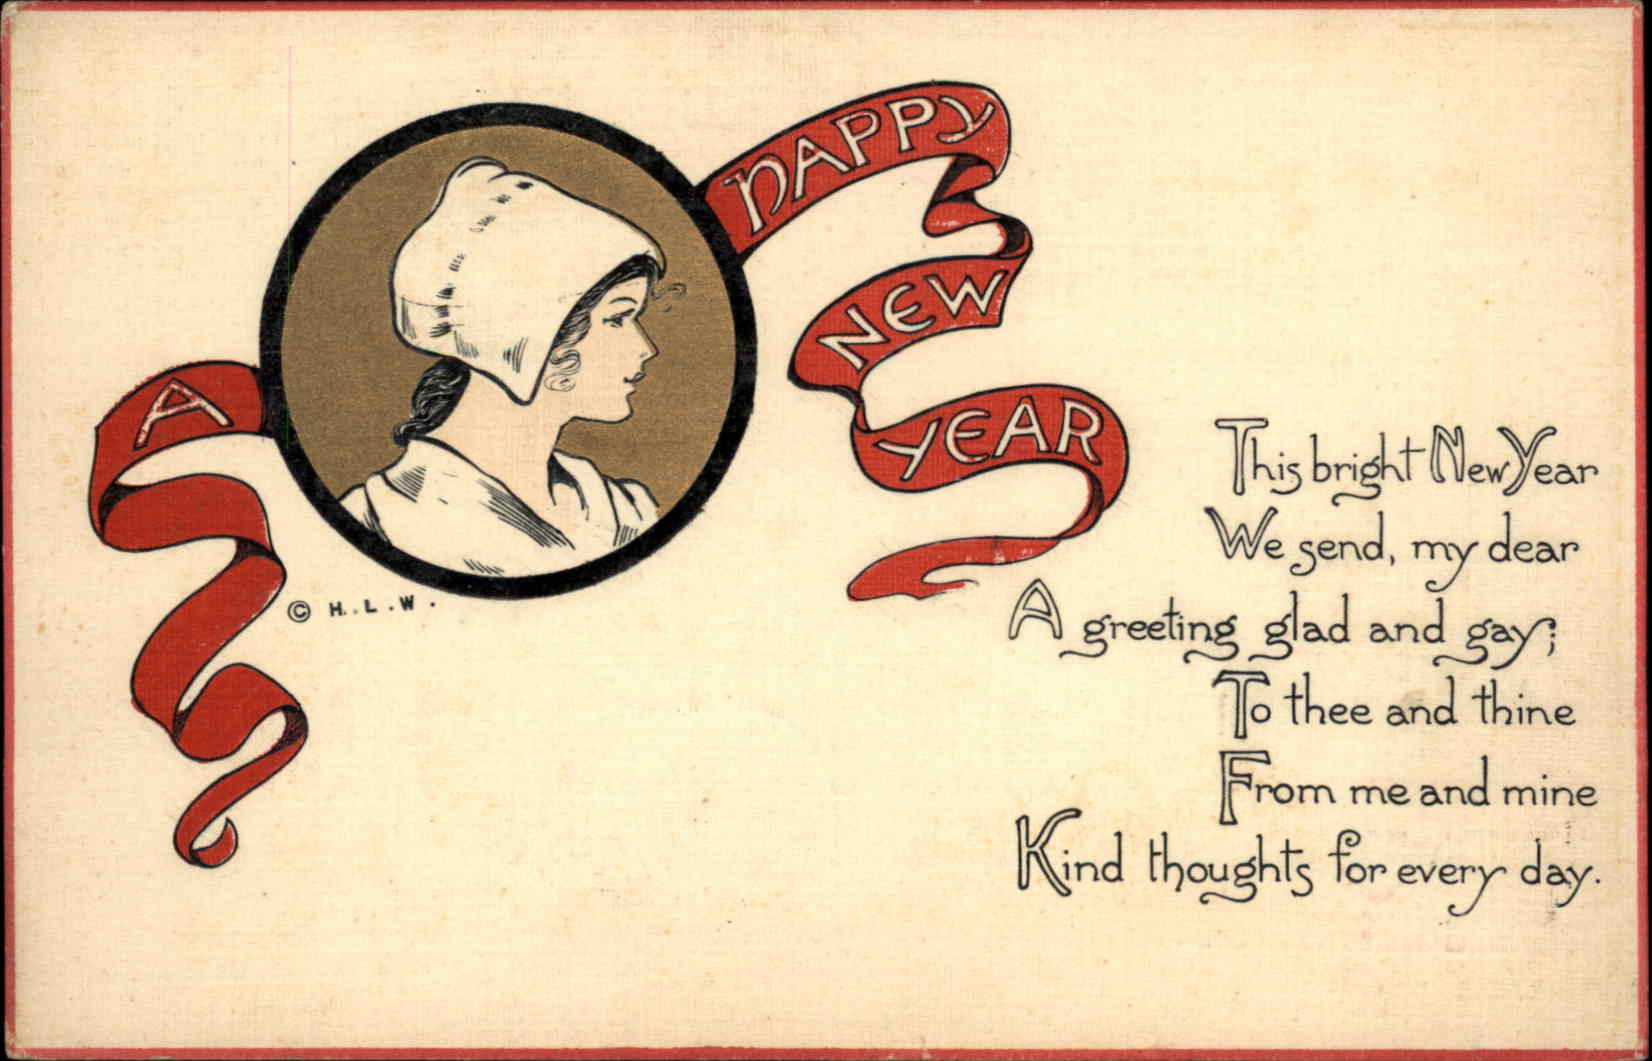 A HAPPY
NEW
YEAR
© H.L.W.
This bright New Year
We send, my dear
A greeting glad and gay;
To thee and thine
From me and mine
Kind thoughts for every day.